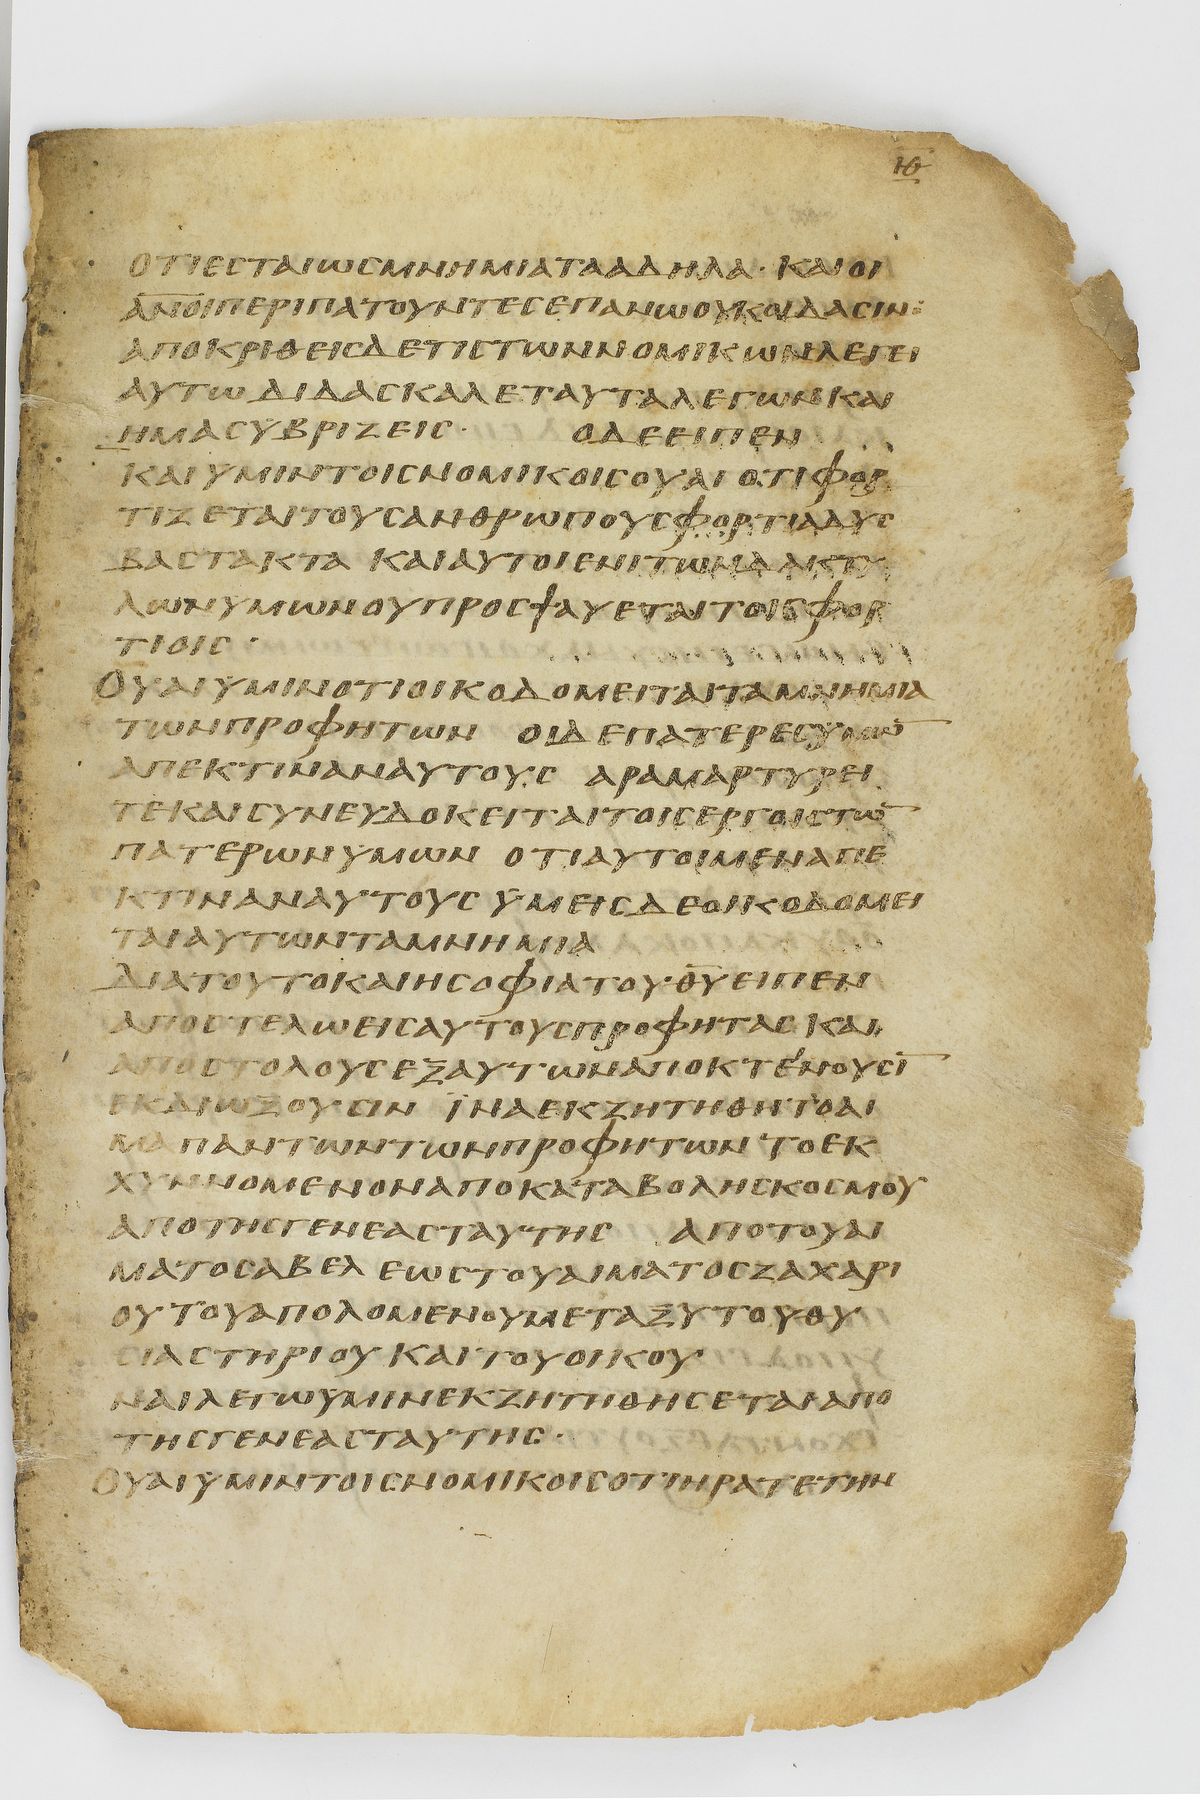 ΟΤΙΕСΤΑΙωСΜΝΗΜΙΑΤΑΑΔΗΛΑ· ΚΑΙΟΙ
ΑΝΟΙΠΕΡΙΠΑΤΟΥΝΤΕСΕΠΑΝωΟΥΚΟΙΔΑСΙΝ:
ΑΠΟΚΡΙΘΕΙСΔΕΤΙСΤωΝΝΟΜΙΚωΝΛΕΓΕΙ
ΑΥΤωΔΙΔΑСΚΑΛΕΤΑΥΤΑΛΕΓωΝΚΑΙ
ΗΜΑСΥΒΡΙΖΕΙС· ΟΔΕΕΙΠΕΝ
ΚΑΙΥΜΙΝΤΟΙСΝΟΜΙΚΟΙСΟΥΑΙΟΤΙΦΟΡ
ΤΙΖΕΤΑΙΤΟΥСΑΝΘΡωΠΟΥСΦΟΡΤΙΑΔΥС
ΒΑСΤΑΚΤΑ ΚΑΙΑΥΤΟΙΕΝΙΤωΝΔΑΚΤΥ
ΛωΝΥΜωΝΟΥΠΡΟСΨΑΥΕΤΑΙΤΟΙСΦΟΡ
ΤΙΟΙС·
ΟΥΑΙΥΜΙΝΟΤΙΟΙΚΟΔΟΜΕΙΤΑΙΤΑΜΝΗΜΙΑ
ΤωΝΠΡΟΦΗΤωΝ ΟΙΔΕΠΑΤΕΡΕСΥΜω̅
ΑΠΕΚΤΙΝΑΝΑΥΤΟΥС ΑΡΑΜΑΡΤΥΡΕΙ
ΤΕΚΑΙСΥΝΕΥΔΟΚΕΙΤΑΙΤΟΙСΕΡΓΟΙСΤω̅
ΠΑΤΕΡωΝΥΜωΝ ΟΤΙΑΥΤΟΙΜΕΝΑΠΕ
ΚΤΙΝΑΝΑΥΤΟΥСΥΜΕΙСΔΕΟΙΚΟΔΟΜΕΙ
ΤΑΙΑΥΤωΝΤΑΜΝΗΜΙΑ
ΔΙΑΤΟΥΤΟΚΑΙΗСΟΦΙΑΤΟΥΘ̅Υ̅ΕΙΠΕΝ
ΑΠΟСΤΕΛωΕΙСΑΥΤΟΥСΠΡΟΦΗΤΑСΚΑΙ
ΑΠΟСΤΟΛΟΥСΕΞΑΥΤωΝΑΠΟΚΤΕΝΟΥСΙ̅
ΕΚΔΙωΞΟΥСΙΝ ΪΝΑΕΚΖΗΤΗΘΗΤΟΑΙ
ΜΑΠΑΝΤωΝΤωΝΠΡΟΦΗΤωΝΤΟΕΚ
ΧΥΝΝΟΜΕΝΟΝΑΠΟΚΑΤΑΒΟΛΗСΚΟСΜΟΥ
ΑΠΟΤΗСΓΕΝΕΑСΤΑΥΤΗС ΑΠΟΤΟΥΑΙ
ΜΑΤΟСΑΒΕΛ ΕωСΤΟΥΑΙΜΑΤΟСΖΑΧΑΡΙ
ΟΥΤΟΥΑΠΟΛΟΜΕΝΟΥΜΕΤΑΞΥΤΟΥΘΥ
СΙΑСΤΗΡΙΟΥΚΑΙΤΟΥΟΙΚΟΥ
ΝΑΙΛΕΓωΥΜΙΝΕΚΖΗΤΗΘΗСΕΤΑΙΑΠΟ
ΤΗСΓΕΝΕΑСΤΑΥΤΗС·
ΟΥΑΙΥΜΙΝΤΟΙСΝΟΜΙΚΟΙСΟΤΙΗΡΑΤΕΤΗΝ